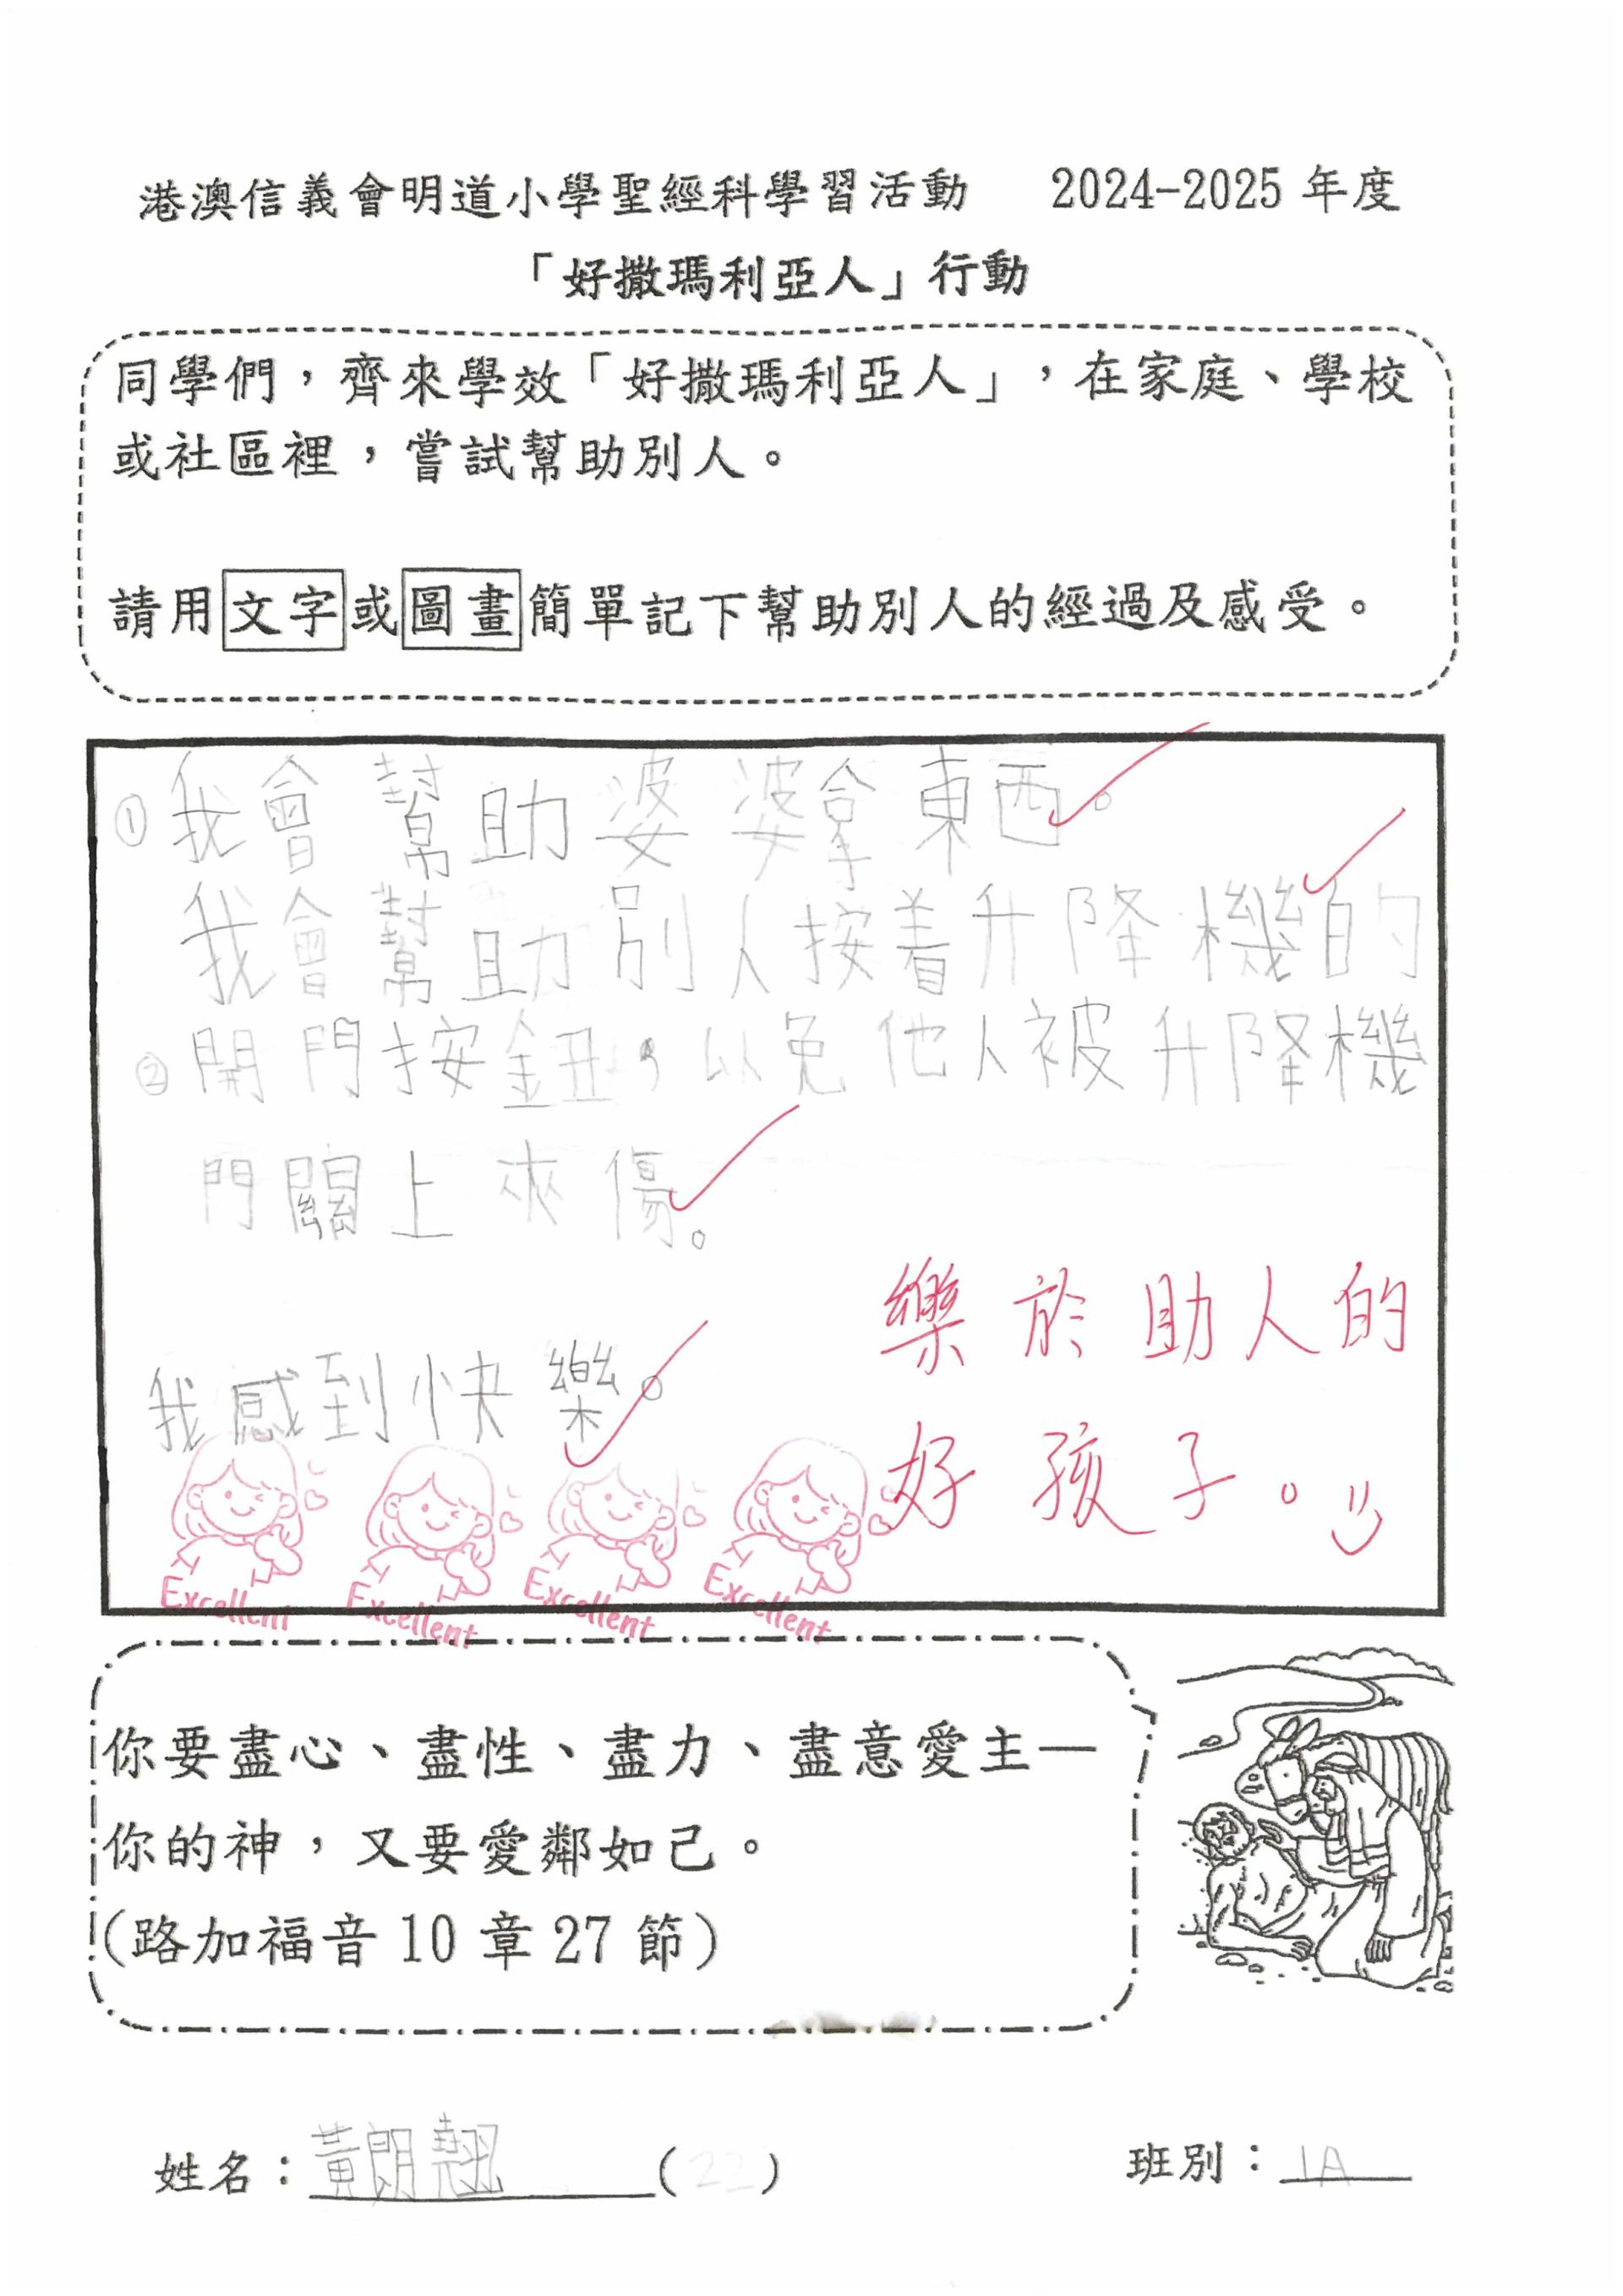 港澳信義會明道小學聖經科學習活動 2024-2025 年度
「好撒瑪利亞人」行動
同學們，齊來學效「好撒瑪利亞人」，在家庭、學校
或社區裡，嘗試幫助別人。
請用文字或圖畫簡單記下幫助別人的經過及感受。
①我會幫助婆婆拿東西。
我會幫助別人按着升降機的
②開門按鈕，以免他人被升降機
門關上夾傷。
樂於助人的
我感到快樂。
好孩子。
Excellent Excellent Excellent Excellent
你要盡心、盡性、盡力、盡意愛主—
你的神，又要愛鄰如己。
(路加福音 10 章 27 節)
姓名：黃朗翹 (22) 班別：1A